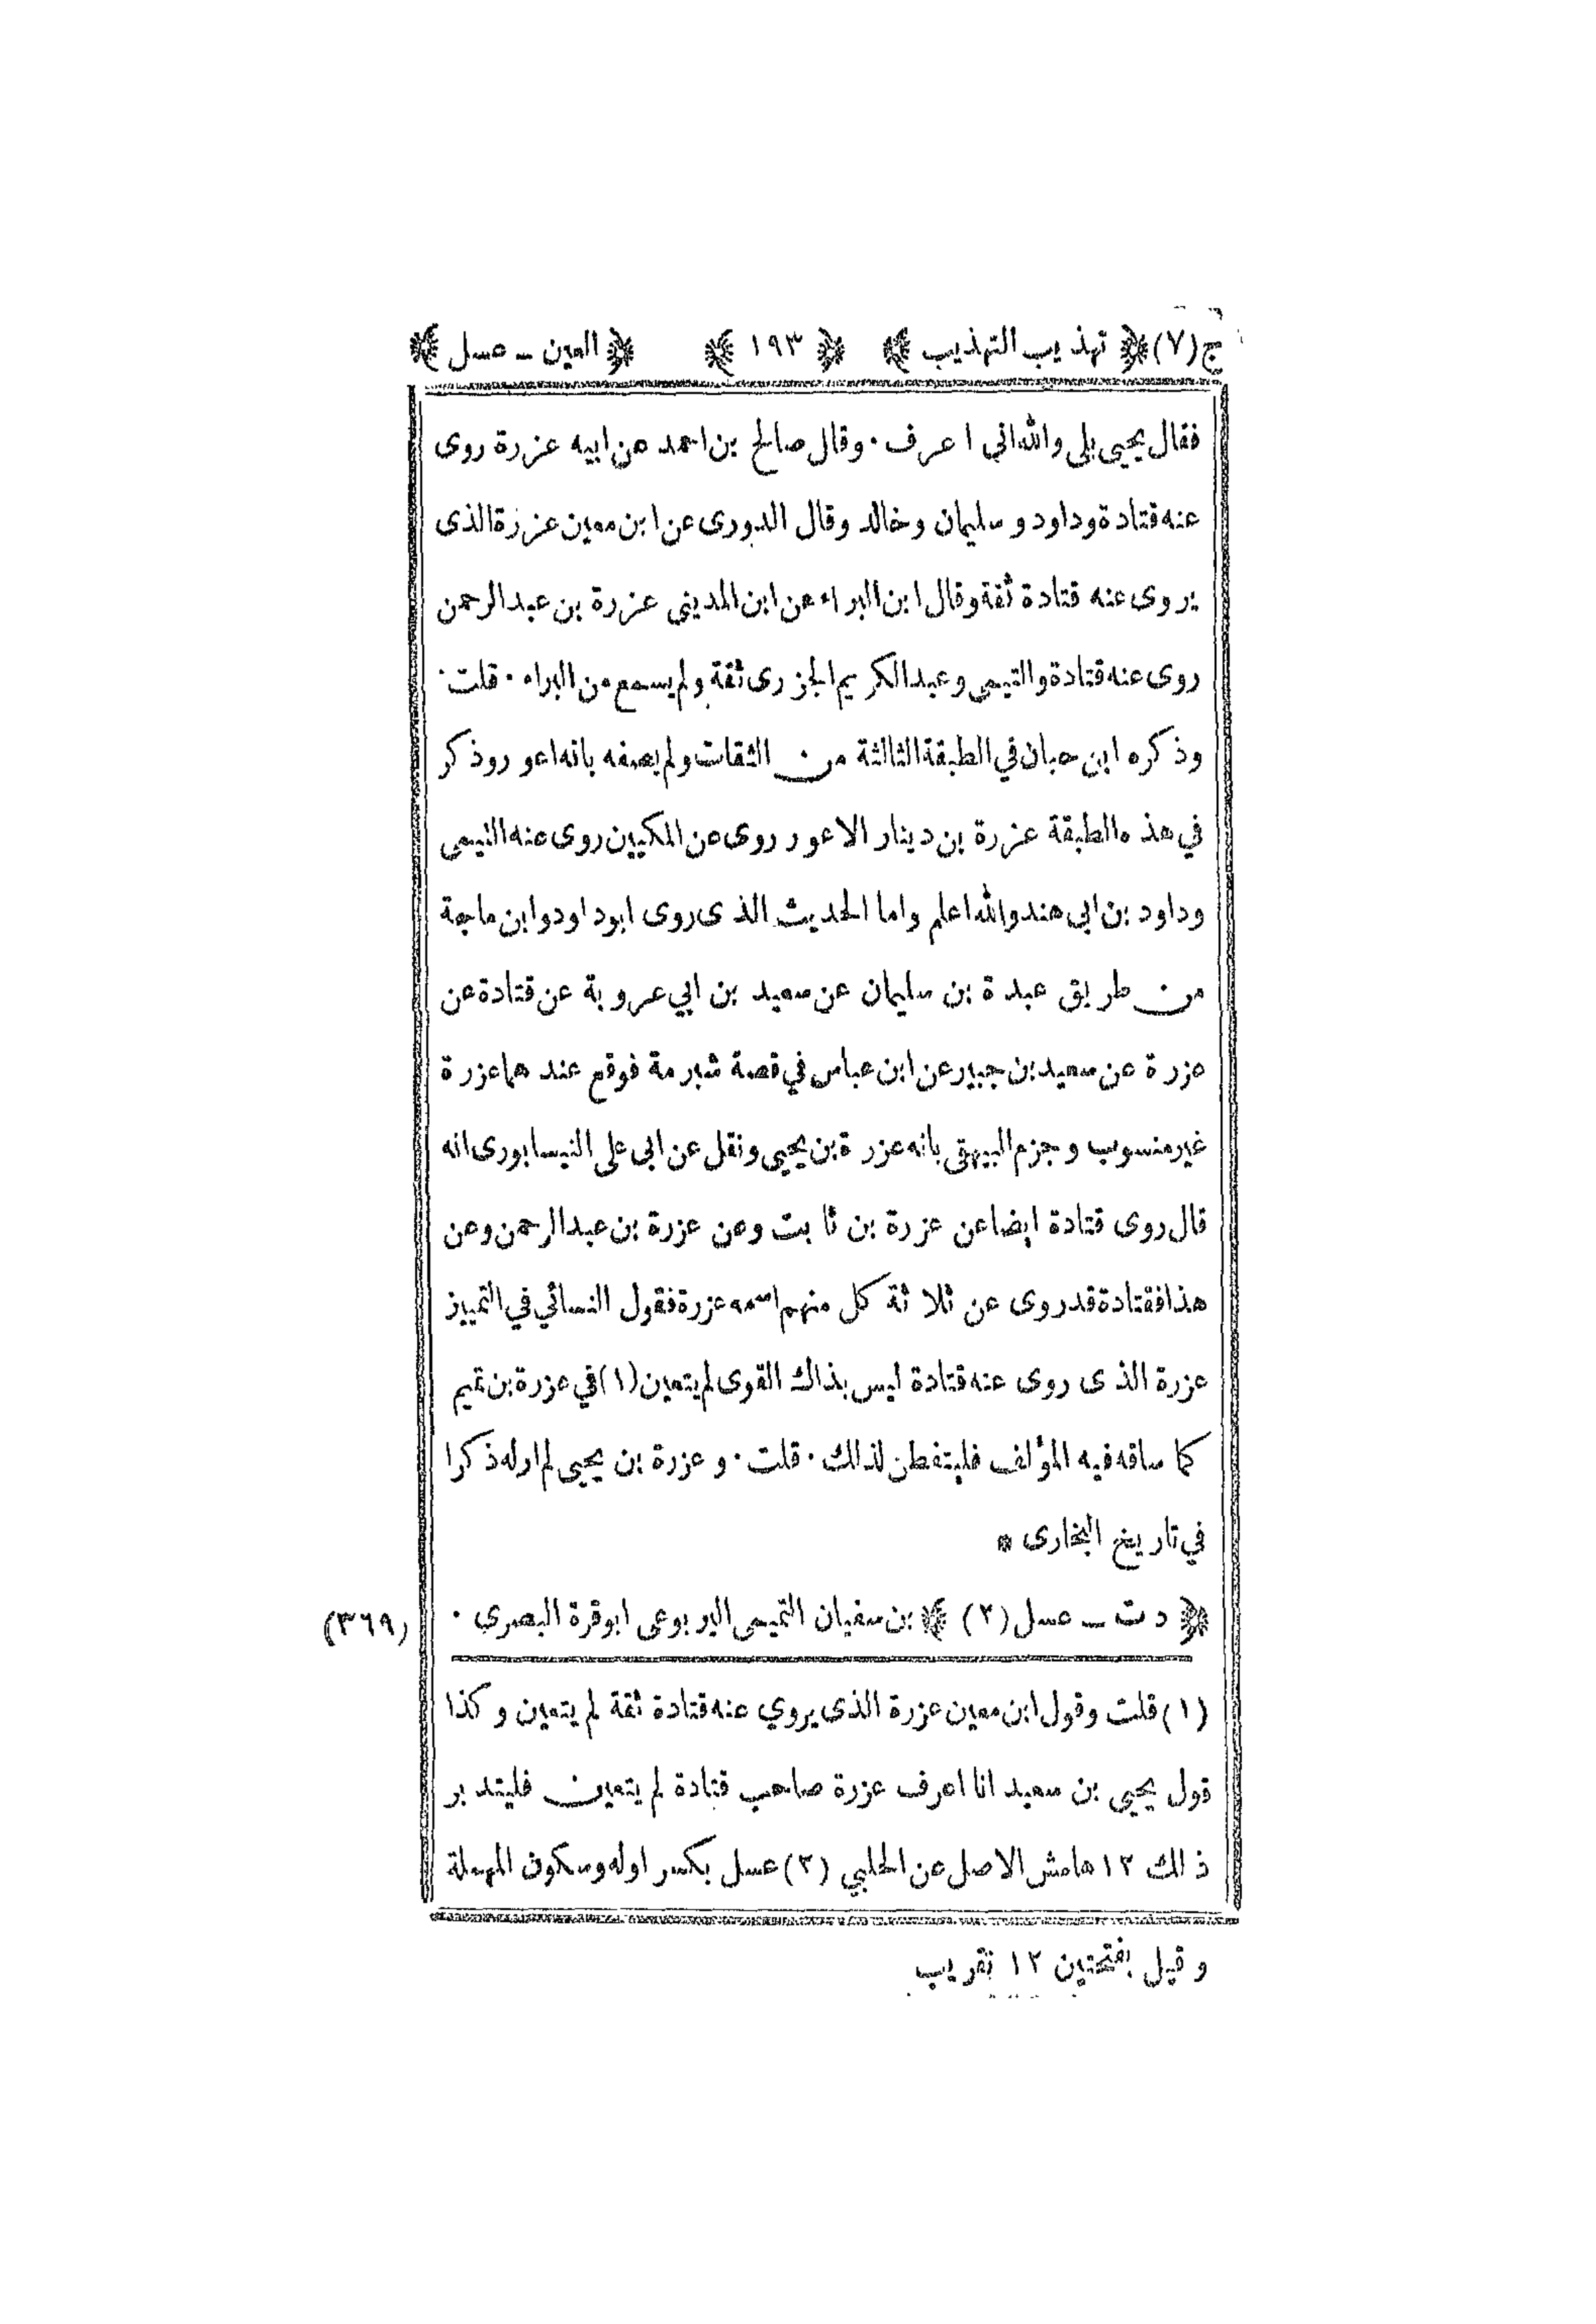 ج(٧) ﴿ تهذيب التهذيب ﴾ ﴿ ١٩٣ ﴾ ﴿ العين ـ عسل ﴾
فقال يحيى بلى والله اني اعرف · وقال صالح بن احمد عن ابيه عزرة روى
عنه قتادة وداود و سليمان وخالد وقال الدورى عن ابن معين عزرة الذى
يروى عنه قتادة ثقة وقال ابن البراء عن ابن المديني عزرة بن عبد الرحمن
روى عنه قتادة والتيمي وعبد الكريم الجزرى ثقة ولم يسمع من البراء · قلت ·
وذكره ابن حبان في الطبقة الثالثة من الثقات ولم يصفه بانه اعور وذكر
في هذه الطبقة عزرة بن دينار الاعور روى عن المكيين روى عنه التيمى
وداود بن ابي هند والله اعلم واما الحديث الذى روى ابو داود وابن ماجة
من طريق عبدة بن سليمان عن سعيد بن ابي عروبة عن قتادة عن
عزرة عن سعيد بن جبير عن ابن عباس في قصة شبرمة فوقع عندهما عزرة
غير منسوب وجزم البيهقى بانه عزرة بن يحيى ونقل عن ابى على النيسابورى انه
قال روى قتادة ايضا عن عزرة بن ثابت وعن عزرة بن عبد الرحمن وعن
هذا فقتادة قد روى عن ثلاثة كل منهم اسمه عزرة فقول النسائي في التمييز
عزرة الذى روى عنه قتادة ليس بذاك القوى لم يتعين (١) في عزرة بن تميم
كما ساقه فيه المؤلف فليتفطن لذلك · قلت · و عزرة بن يحيى لم ار له ذكرا
في تاريخ البخارى *
﴿ د ت ـ عسل (٢) ﴾ بن سفيان التميمى اليربوعى ابو قرة البصري · (٣٦٩)
(١) قلت وقول ابن معين عزرة الذى يروي عنه قتادة ثقة لم يتعين وكذا
قول يحيى بن سعيد انا اعرف عزرة صاحب قتادة لم يتعين فليتدبر
ذلك ١٢ هامش الاصل عن الحلبي (٢) عسل بكسر اوله وسكون المهملة
و قيل بفتحتين ١٢ تقريب